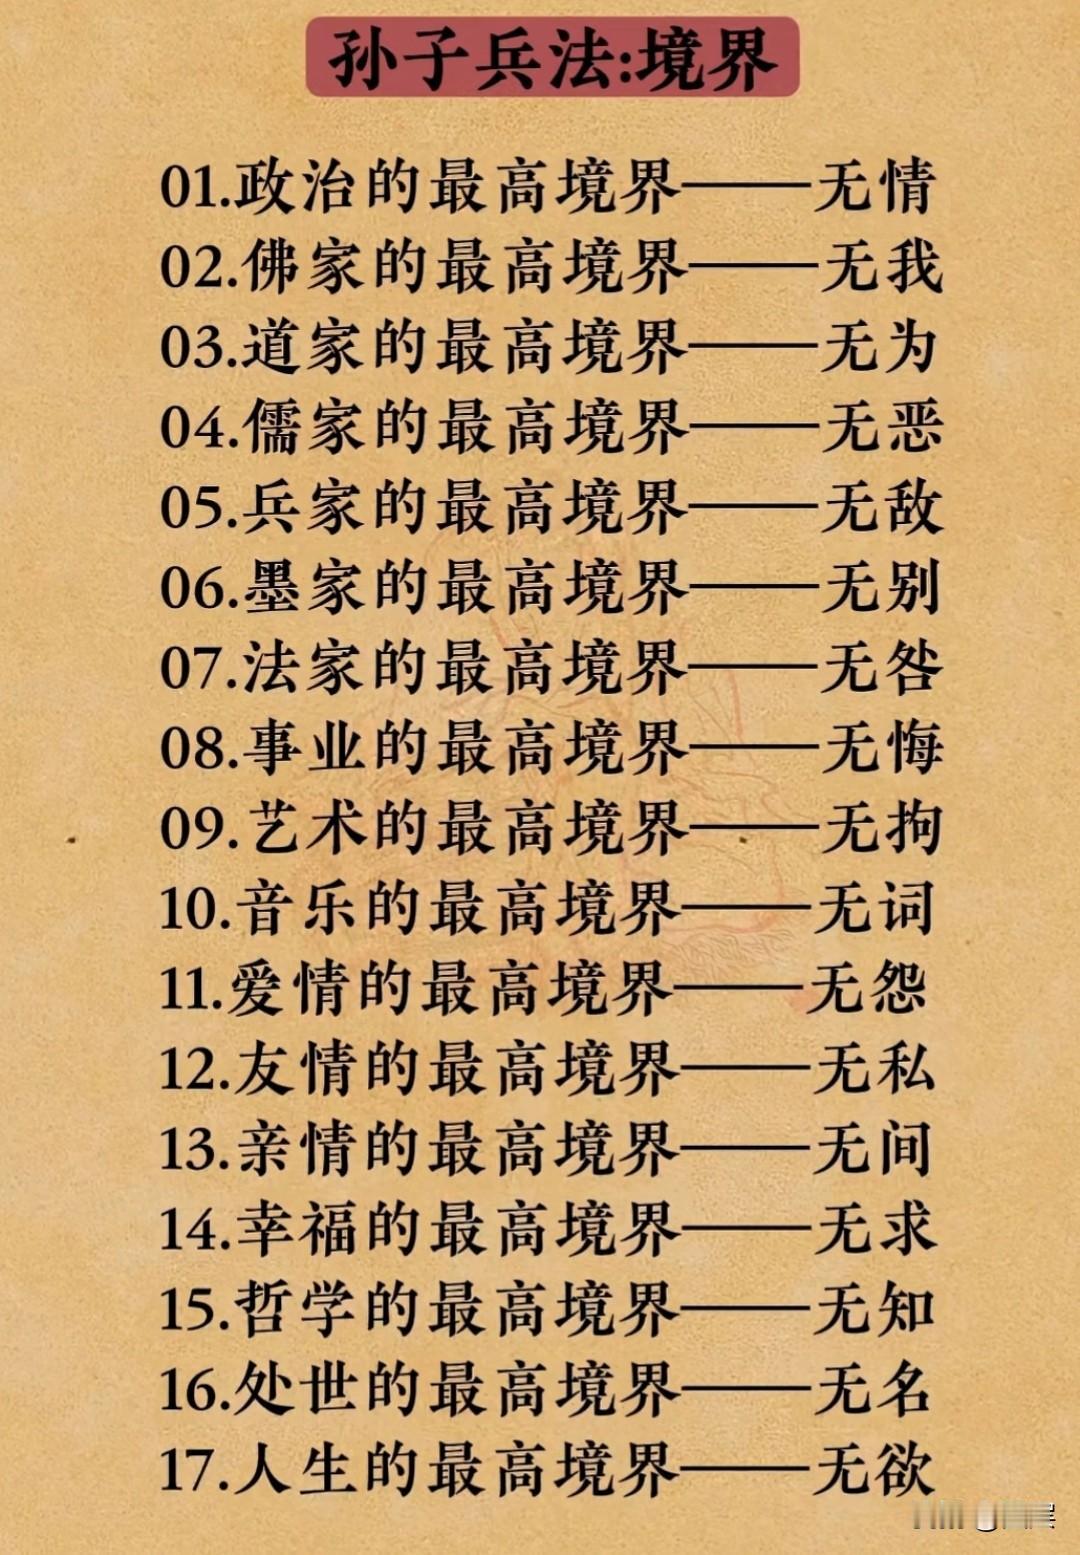 孙子兵法:境界
01.政治的最高境界——无情
02.佛家的最高境界——无我
03.道家的最高境界——无为
04.儒家的最高境界——无恶
05.兵家的最高境界——无敌
06.墨家的最高境界——无别
07.法家的最高境界——无咎
08.事业的最高境界——无悔
09.艺术的最高境界——无拘
10.音乐的最高境界——无词
11.爱情的最高境界——无怨
12.友情的最高境界——无私
13.亲情的最高境界——无间
14.幸福的最高境界——无求
15.哲学的最高境界——无知
16.处世的最高境界——无名
17.人生的最高境界——无欲